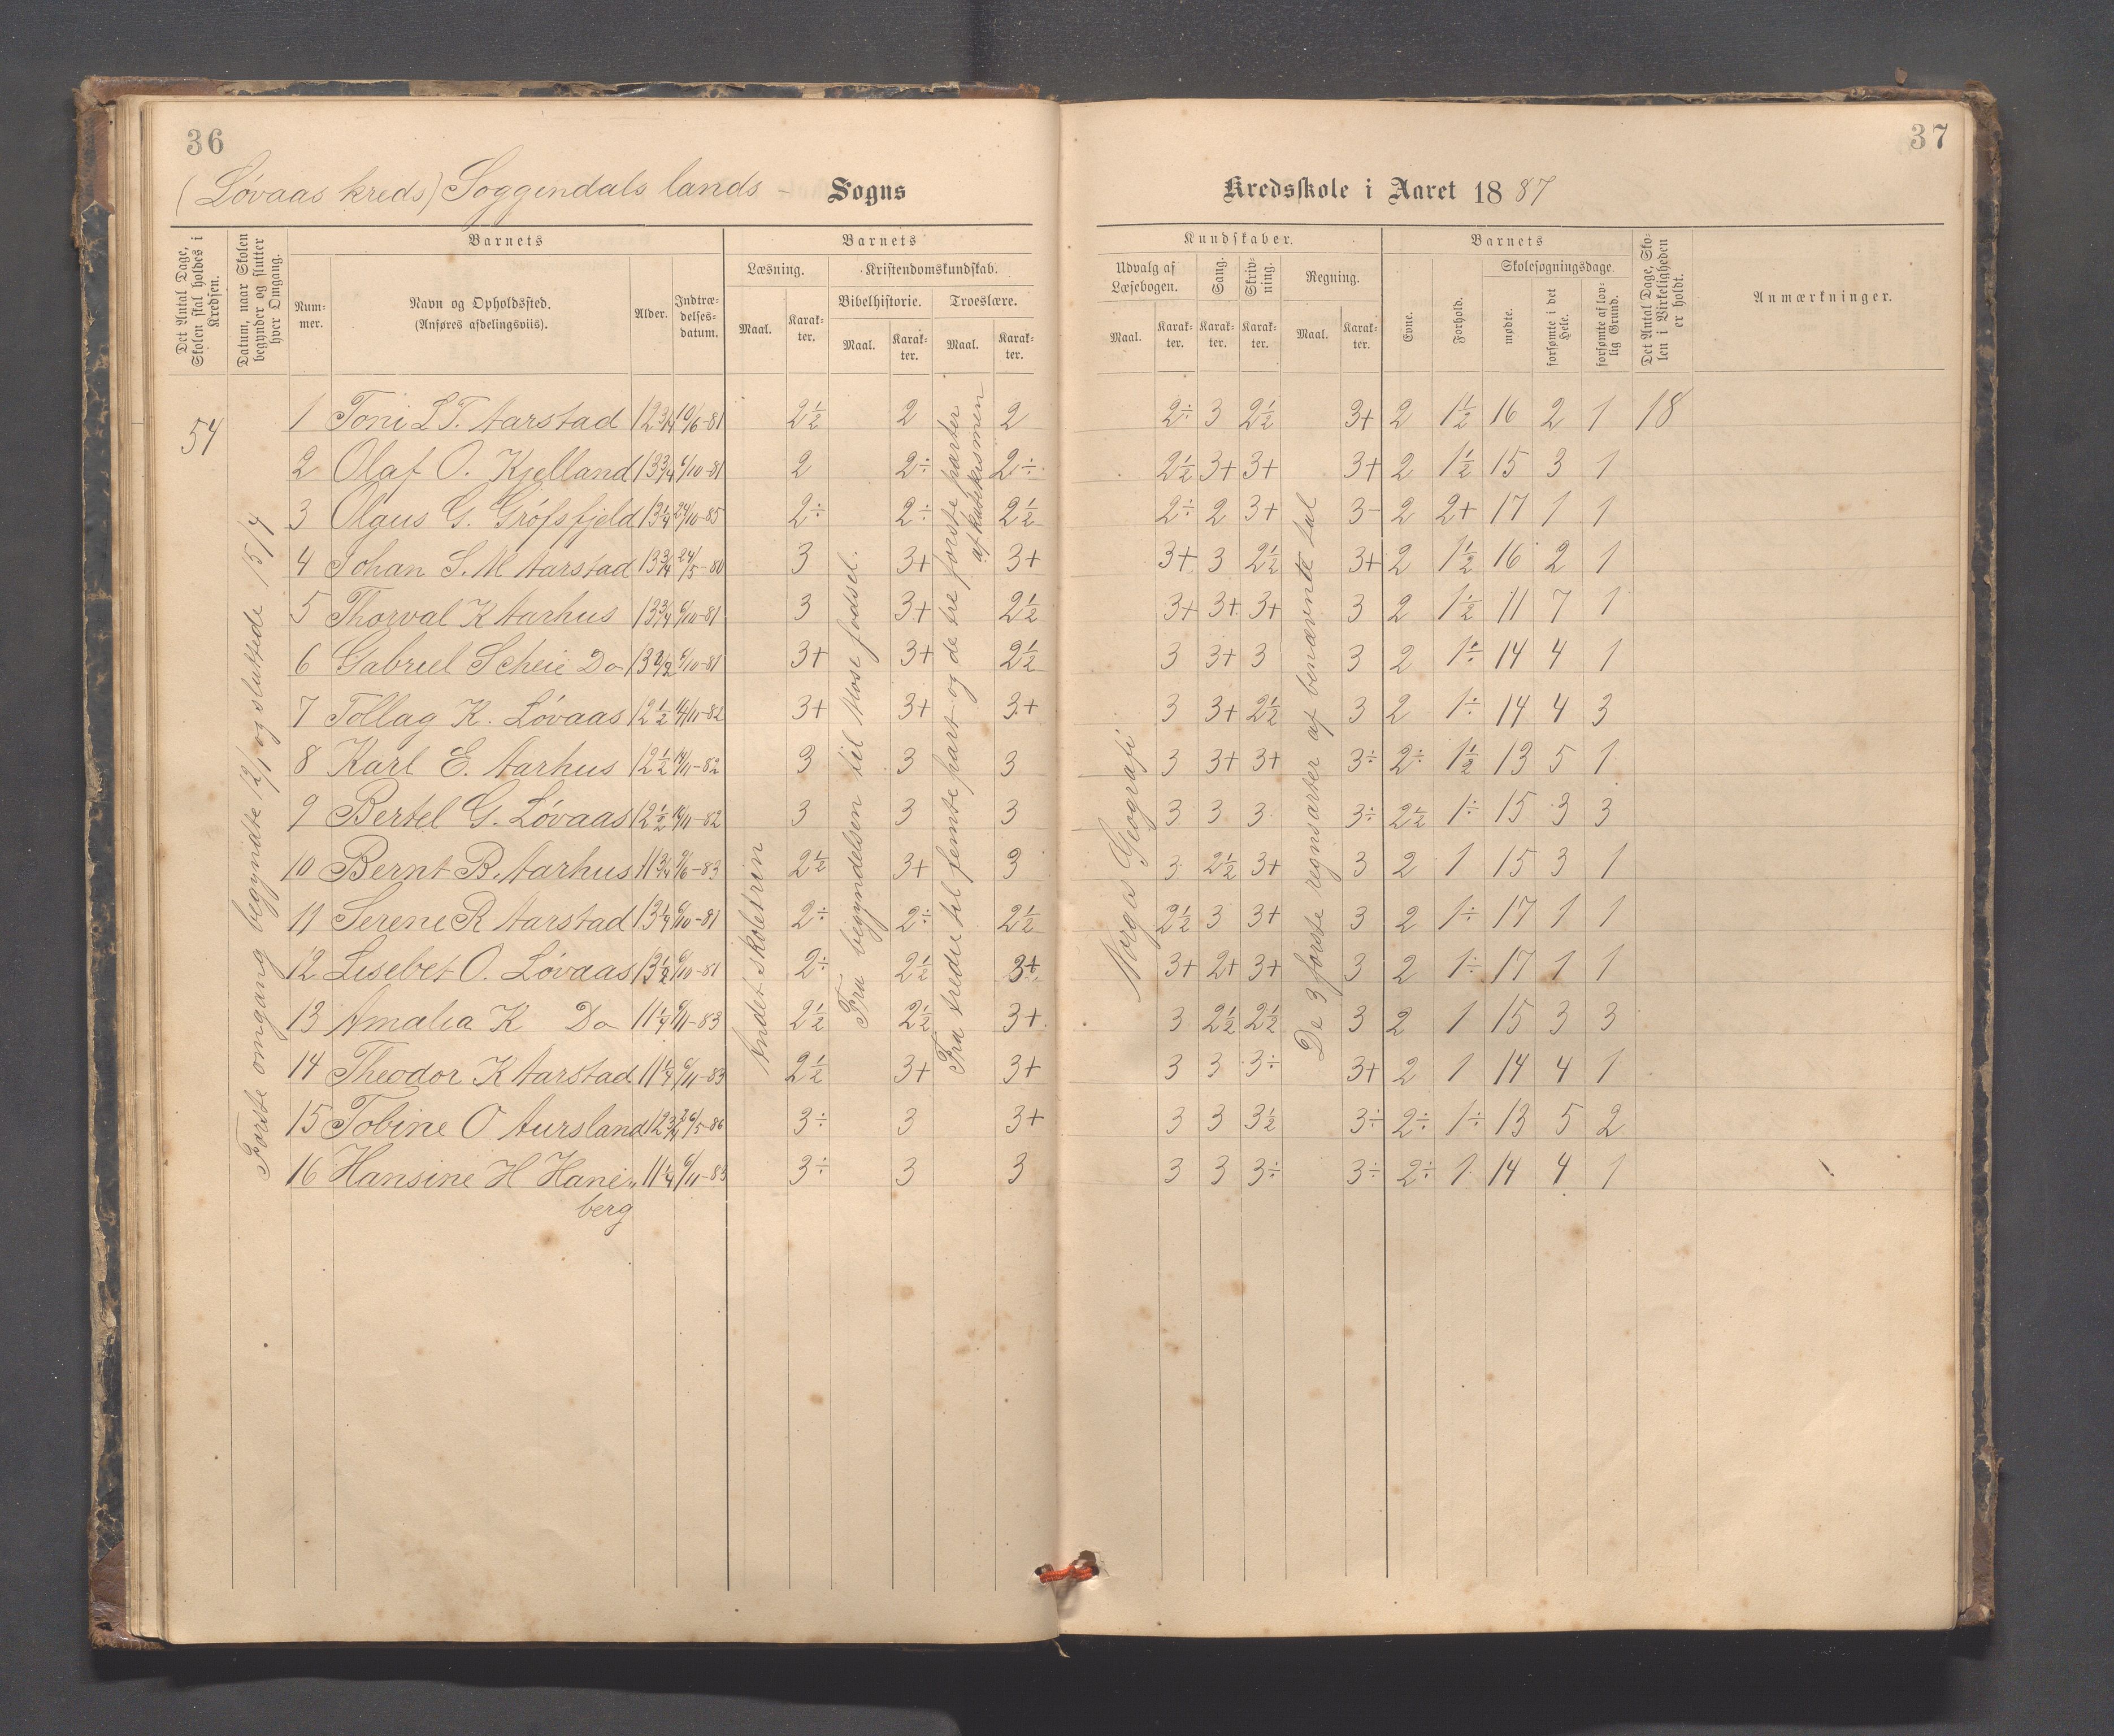 36
37
(Løvaas kreds) Soggendals lands - Sogns
Kredsskole i Aaret 1887
Det Antal Dage, Skolen skal holdes i Kredsen.
Datum, naar Skolen begynder og slutter hver Omgang.
Barnets
Num-mer.
Navn og Opholdssted.
(Anføres afdelingsviis).
Alder.
Indtræ-delses-datum.
Barnets
Læsning.
Maal.
Karak-ter.
Kristendomskundskab.
Bibelhistorie.
Maal.
Karak-ter.
Troeslære.
Maal.
Karak-ter.
Kundskaber.
Udvalg af Læsebogen.
Maal.
Karak-ter.
Sang.
Karak-ter.
Skriv-ning.
Karak-ter.
Regning.
Maal.
Karak-ter.
Barnets
Evne.
Forhold.
Skolesøgningsdage.
mødte.
forsømte i det Hele.
forsømte af lov-lig Grund.
Det Antal Dage, Sko-len i Virkeligheden er holdt.
Anmærkninger.
54
Første omgang begyndte 12/1 og sluttede 15/4
Andet skoletrin
Fra begyndelsen til Mose fødsel.
Fra tredie til femte part og de tre første parter af katekismen
Norges Geografi
De 3 første regnsarter af benævnte tal
1 Toni L T. Aarstad 12 3/4 10/6-81 2½ 2 2 2÷ 3 2½ 3+ 2 1½ 16 2 1 18
2 Olaf O. Kjelland 13 3/4 6/10-81 2 2÷ 2÷ 2½ 3+ 3+ 3+ 2 1½ 15 3 1
3 Olaus G. Grøfsfjeld 13 1/4 24/10-85 2÷ 2÷ 2½ 2÷ 2 3+ 3- 2 2+ 17 1 1
4 Johan S. M Aarstad 13 3/4 24/5-80 3 3+ 3+ 3+ 3 2½ 3+ 2 1½ 16 2 1
5 Thorval K Aarhus 13 3/4 6/10-81 3 3+ 2½ 3+ 3+ 3+ 3 2 1½ 11 7 1
6 Gabriel Scheie Do 13 1/2 6/10-81 3+ 3+ 2½ 3 3+ 3 3 2 1÷ 14 4 1
7 Tollag K. Løvaas 12 ½ 14/11-82 3+ 3+ 3+ 3 3+ 2½ 3 2 1÷ 14 4 3
8 Karl E. Aarhus 12 ½ 14/11-82 3 3 3 3 3+ 3+ 3÷ 2÷ 1½ 13 5 1
9 Bertel G. Løvaas 12 ½ 14/11-82 3 3 3 3 3 3 3÷ 2½ 1÷ 15 3 3
10 Bernt B. Aarhus 11 3/4 9/6-83 2½ 3+ 3 3 2½ 3+ 3 2 1 15 3 1
11 Serene R Aarstad 13 1/4 6/10-81 2÷ 2÷ 2½ 2½ 3 3+ 3 2 1÷ 17 1 1
12 Lisebet O. Løvaas 13 ½ 6/10-81 2÷ 2½ 3+ 3+ 2+ 3+ 3 2 1÷ 17 1 1
13 Amalia K Do 11 1/4 6/11-83 2½ 2½ 3+ 3 2½ 2½ 3 2 1 15 3 3
14 Theodor K Aarstad 11 1/4 6/11-83 2½ 3+ 3+ 3 3 3÷ 3+ 2 1 14 4 1
15 Tobine O Aursland 12 3/4 26/5-86 3÷ 3 3+ 3 3 3½ 3÷ 2÷ 1÷ 13 5 2
16 Hansine H Hane„ 11 1/4 6/11-83 3÷ 3 3 3 3 3÷ 3÷ 2÷ 1 14 4 1
berg